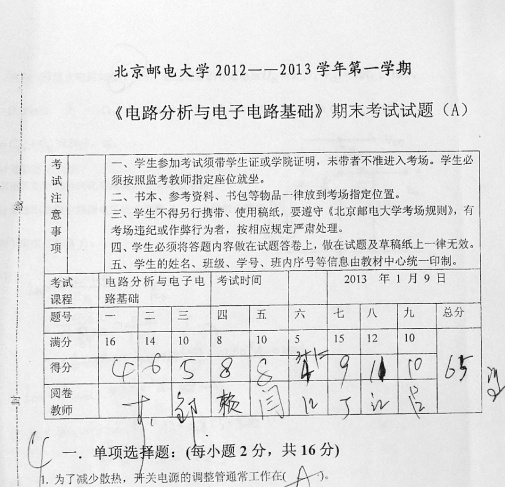 北京邮电大学 2012——2013 学年第一学期
《电路分析与电子电路基础》期末考试试题（A）
考试注意事项
一、学生参加考试须带学生证或学院证明，未带者不准进入考场。学生必
须按照监考教师指定座位就坐。
二、书本、参考资料、书包等物品一律放到考场指定位置。
三、学生不得另行携带、使用稿纸，要遵守《北京邮电大学考场规则》，有
考场违纪或作弊行为者，按相应规定严肃处理。
四、学生必须将答题内容做在试题答卷上，做在试题及草稿纸上一律无效。
五、学生的姓名、班级、学号、班内序号等信息由教材中心统一印制。
考试课程 电路分析与电子电路基础 考试时间 2013 年 1 月 9 日
题号 一 二 三 四 五 六 七 八 九 总分
满分 16 14 10 8 10 5 15 12 10
得分 4 6 5 8 8 4 9 11 10 65
阅卷教师
4
一．单项选择题：(每小题 2 分，共 16 分)
1. 为了减少散热，开关电源的调整管通常工作在( A )。
线
封